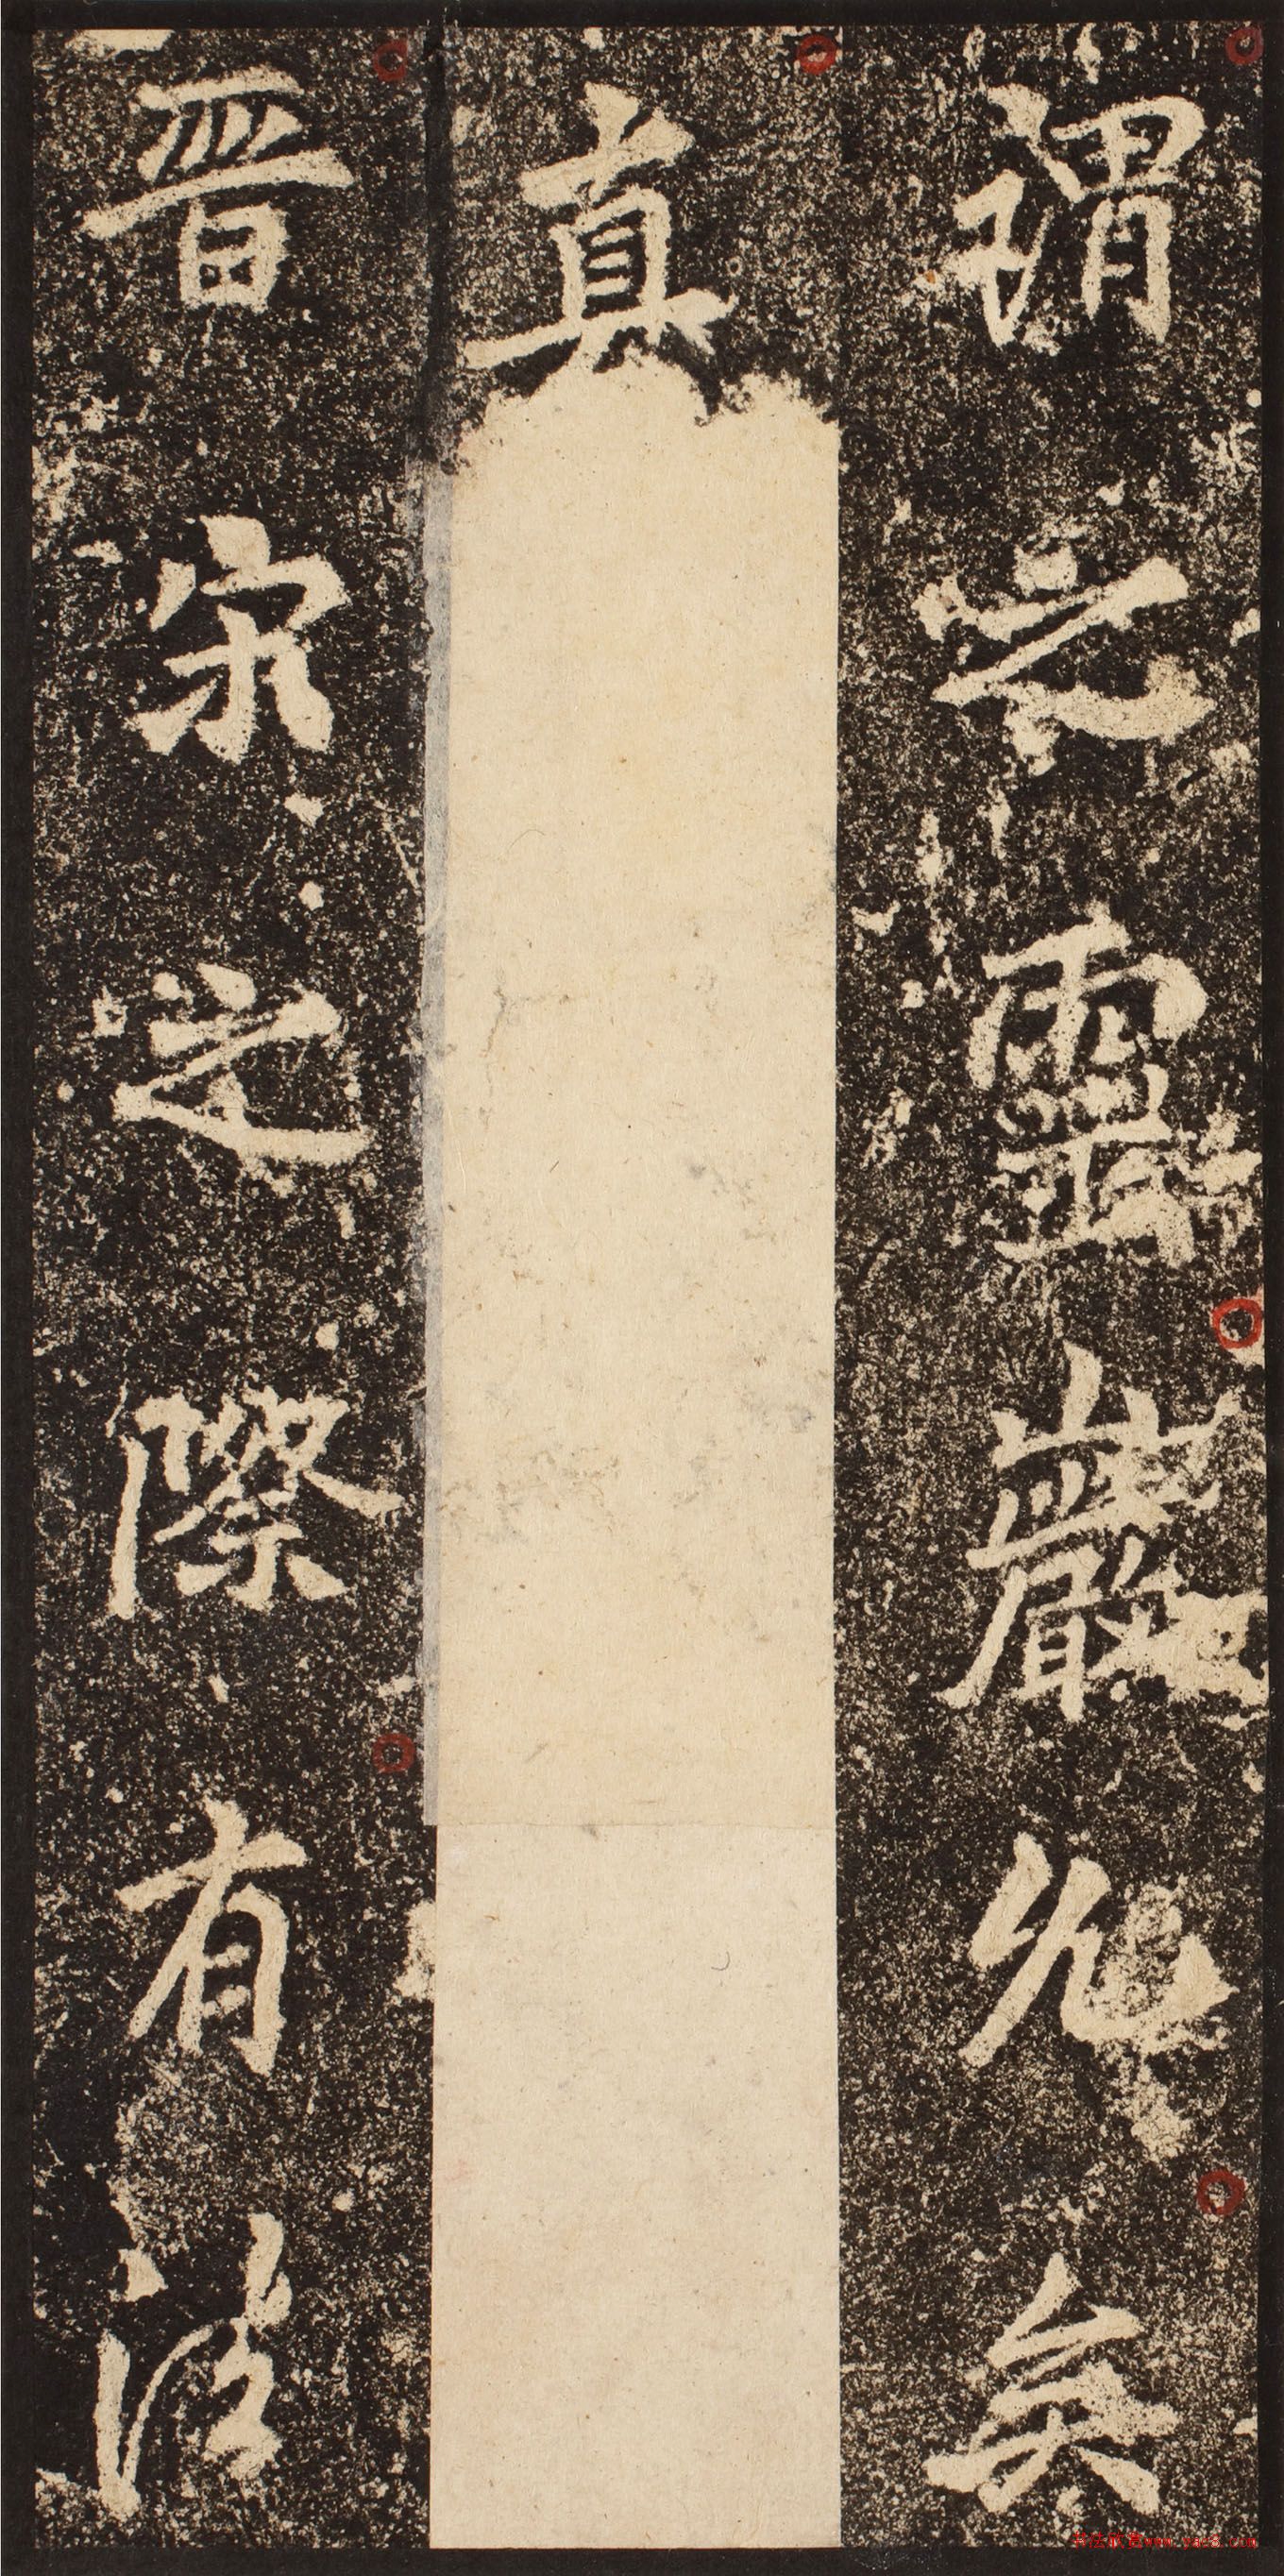 謂之靈巖允矣
真
晋宋之際有法
书法欣赏www.yac8.com